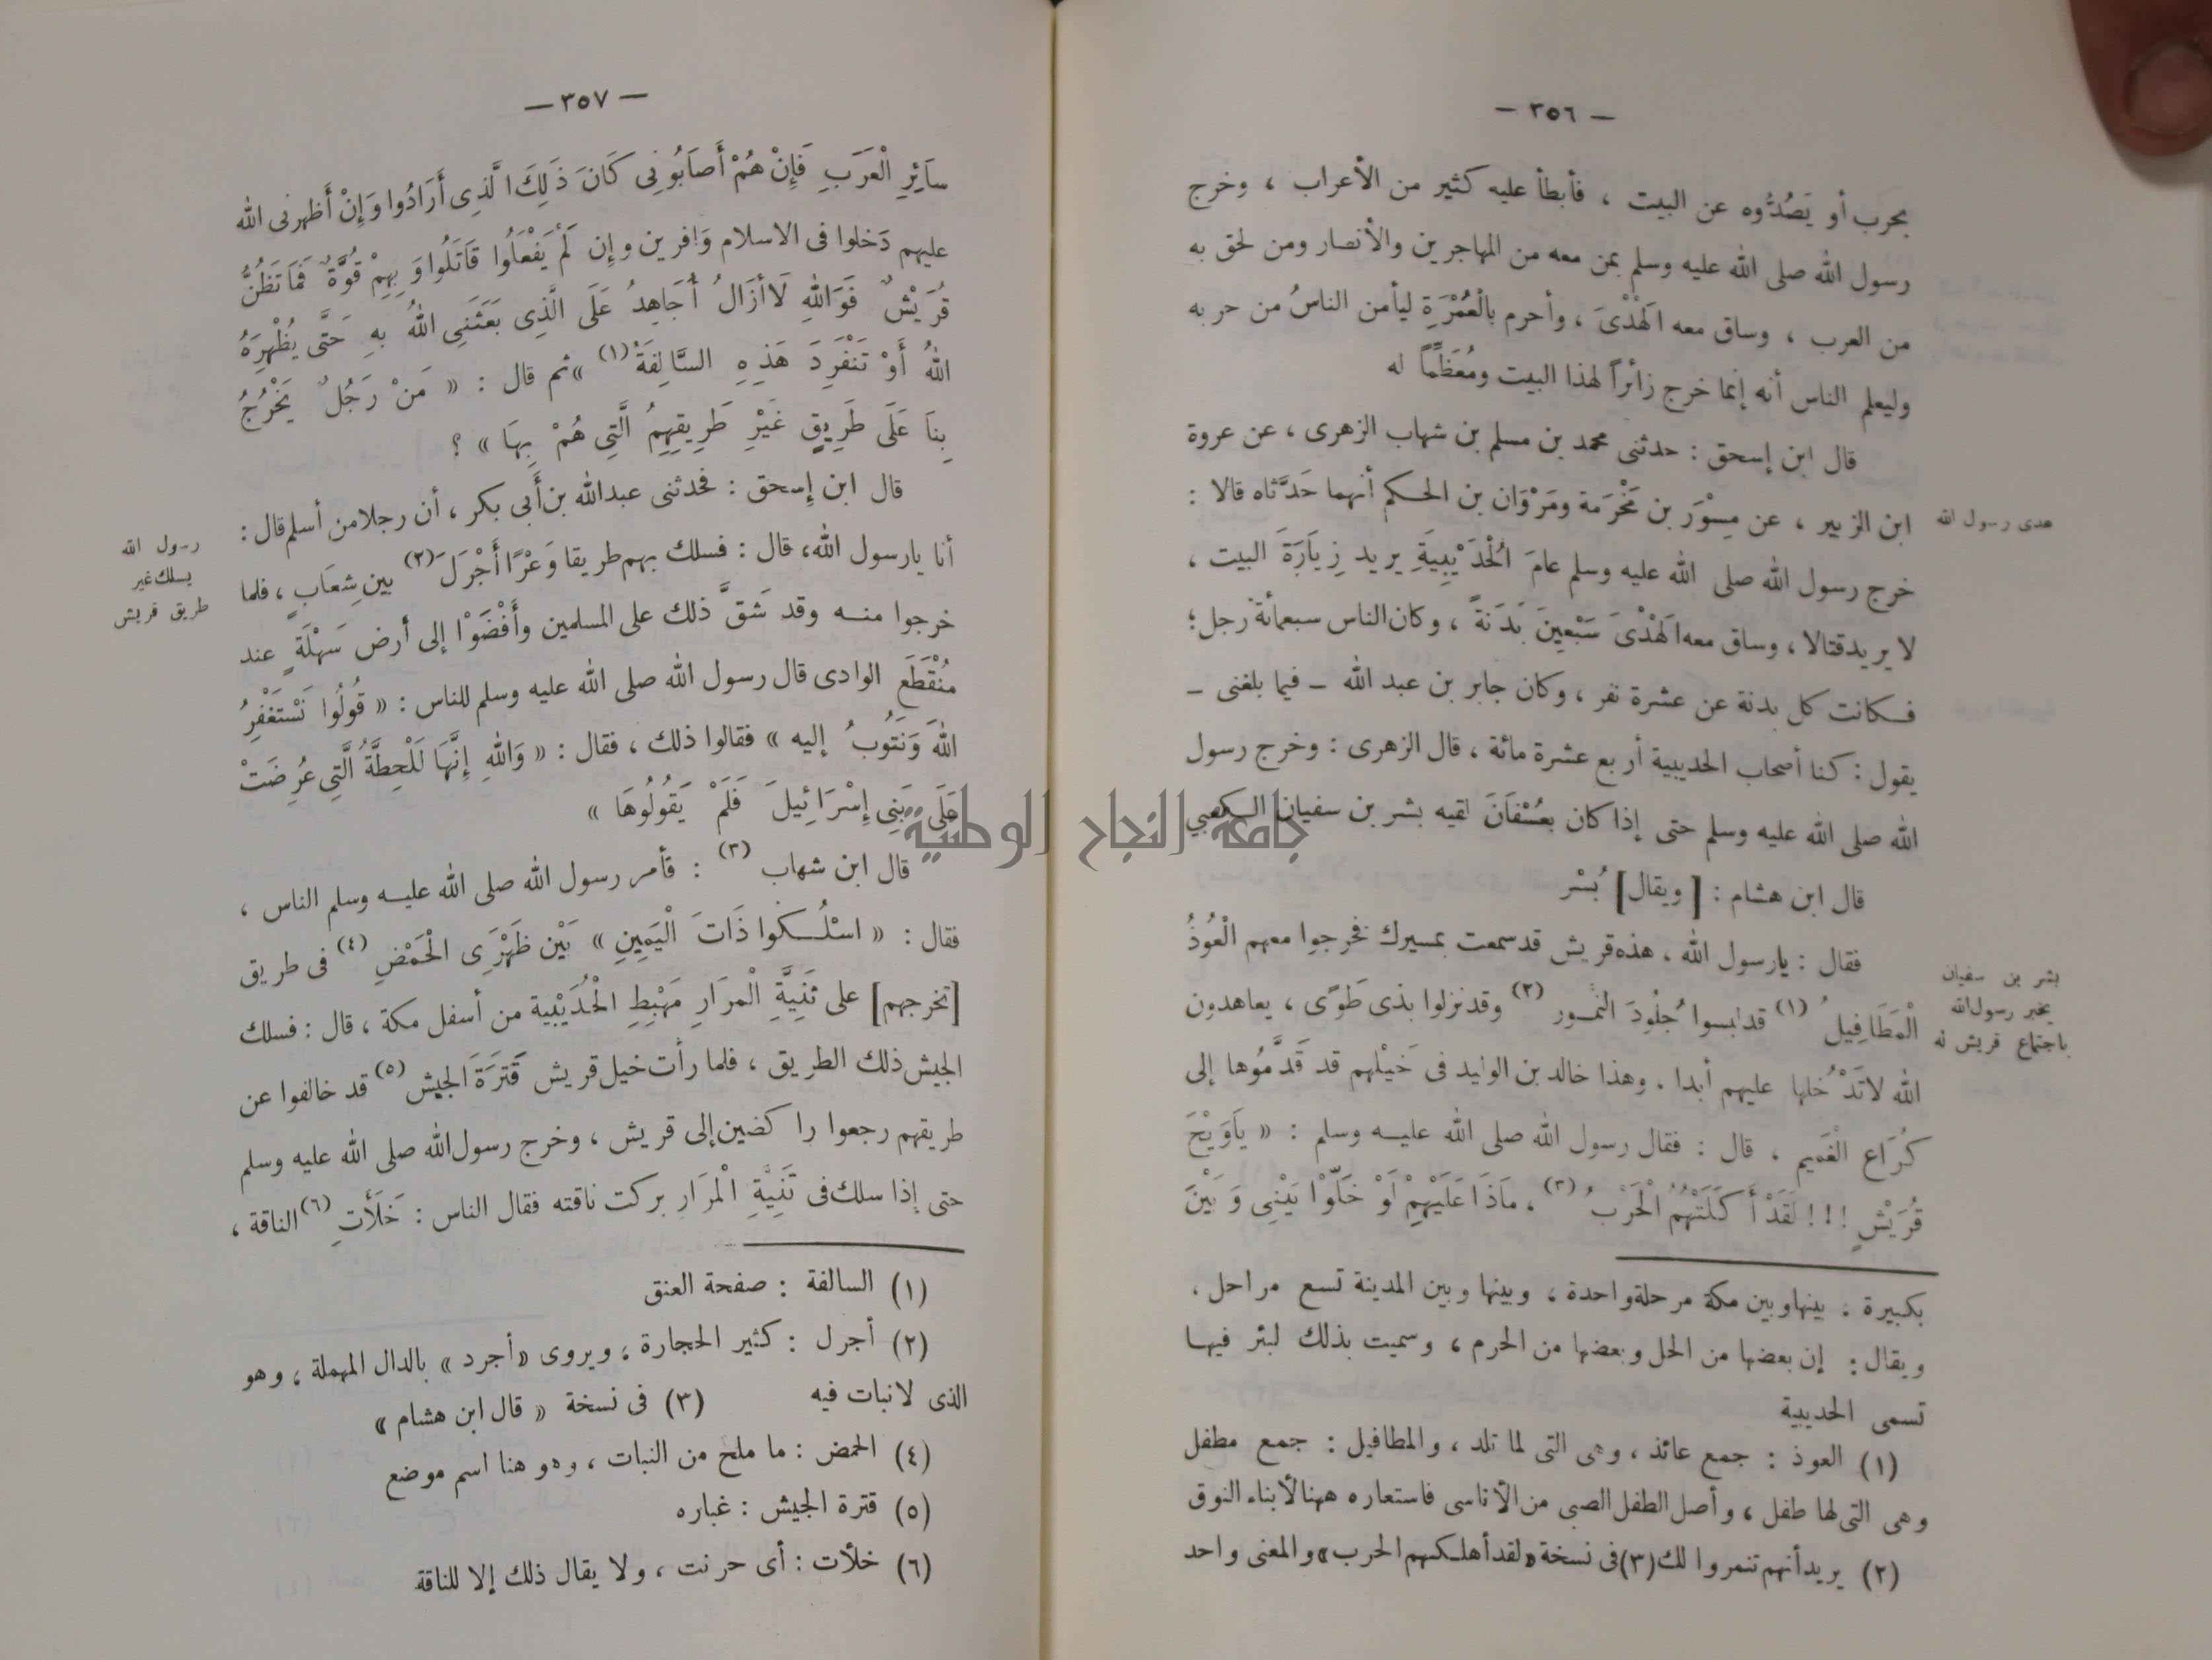 — ٣٥٦ —
بحرب أو يَصُدُّوه عن البيت ، فأبطأ عليه كثير من الأعراب ، وخرج
رسول الله صلى الله عليه وسلم بمن معه من المهاجرين والأنصار ومن لحق به
من العرب ، وساق معه الْهَدْىَ ، وأحرم بالْعُمْرَةِ ليأمن الناسُ من حربه
وليعلم الناس أنه إنما خرج زائراً لهذا البيت ومُعَظِّمًا له
قال ابن إسحق : حدثنى محمد بن مسلم بن شهاب الزهرى ، عن عروة
ابن الزبير ، عن مِسْوَر بن مَخْرَمة ومَرْوَان بن الحكم أنهما حَدَّثاه قالا :
هدى رسول الله
خرج رسول الله صلى الله عليه وسلم عامَ الْحُدَيْبِيَةِ يريد زِيَارَةَ البيت ،
لا يريد قتالا ، وساق معه الْهَدْىَ سَبْعِينَ بَدَنَةً ، وكان الناس سبعمائة رجل ؛
فكانت كل بدنة عن عشرة نفر ، وكان جابر بن عبد الله – فيما بلغنى –
يقول : كنا أصحاب الحديبية أربع عشرة مائة ، قال الزهرى : وخرج رسول
الله صلى الله عليه وسلم حتى إذا كان بعُسْفَانَ لقيه بشر بن سفيان الكعبي
قال ابن هشام : [ ويقال ] بُسْر
فقال : يارسول الله ، هذه قريش قد سمعت بمسيرك فخرجوا معهم الْعُوذُ
الْمَطَافِيلُ (١) قد لبسوا جُلُودَ النمور (٢) وقد نزلوا بذى طَوًى ، يعاهدون
الله لا تَدْخُلها عليهم أبدا . وهذا خالد بن الوليد فى خَيْلهم قد قَدَّمُوها إلى
بشر بن سفيان
يخبر رسول الله
باجتماع قريش له
كُرَاع الْغَمِيم ، قال : فقال رسول الله صلى الله عليه وسلم : « يَاوَيْحَ
قُرَيْشٍ !!! لَقَدْ أَكَلَتْهُمُ الْحَرْبُ (٣) ، مَاذَا عَلَيْهِمْ لَوْ خَلَّوْا بَيْنِى وَبَيْنَ
بكبيرة . بينها وبين مكة مرحلة واحدة ، وبينها وبين المدينة تسع مراحل .
ويقال : إن بعضها من الحل وبعضها من الحرم ، وسميت بذلك لبئر فيها
تسمى الحديبية
(١) العوذ : جمع عائذ ، وهى التى لما تلد ، والمطافيل : جمع مطفل
وهى التى لها طفل ، وأصل الطفل الصبى من الأناسى فاستعاره ههنا لأبناء النوق
(٢) يريد أنهم تنمروا لك (٣) فى نسخة «لقد أهلكتهم الحرب» والمعنى واحد
— ٣٥٧ —
سَائِرِ الْعَرَبِ فَإِنْ هُمْ أَصَابُونِى كَانَ ذَلِكَ الَّذِى أَرَادُوا وَإِنْ أَظهرنى الله
عليهم دَخلوا فى الاسلام وَافرين وإن لَمْ يَفْعَلُوا قَاتَلُوا وَبِهِمْ قُوَّةٌ فَمَا تَظُنُّ
قُرَيْشٌ فَوَاللهِ لَا أَزَالُ أُجَاهِدُ عَلَى الَّذِى بَعَثَنِى اللهُ بِهِ حَتَّى يُظْهِرَهُ
اللهُ أَوْ تَنْفَرِدَ هَذِهِ السَّالِفَةُ (١) » ثم قال : « مَنْ رَجُلٌ يَخْرُجُ
بِنَا عَلَى طَرِيقٍ غَيْرِ طَرِيقِهِمُ الَّتِى هُمْ بِهَا » ؟
قال ابن إسحق : فحدثنى عبد الله بن أَبى بكر ، أن رجلا من أسلم قال :
أنا يارسول الله ، قال : فسلك بهم طريقا وَعْرًا أَجْرَلَ (٢) بين شِعَابٍ ، فلما
رسول الله
يسلك غير
طريق قريش
خرجوا منه وقد شَقَّ ذلك على المسلمين وأَفْضَوْا إلى أرض سَهْلَةٍ عند
مُنْقَطَع الوادى قال رسول الله صلى الله عليه وسلم للناس : « قُولُوا نَسْتَغْفِرُ
اللهَ وَنَتُوبُ إليه » فقالوا ذلك ، فقال : « وَاللهِ إِنَّهَا لَلْحِطَّةُ الَّتِى عُرِضَتْ
عَلَى بَنِى إِسْرَائِيلَ فَلَمْ يَقُولُوهَا »
قال ابن شهاب (٣) : فأمر رسول الله صلى الله عليه وسلم الناس ،
فقال : « اسْلُكُوا ذَاتَ الْيَمِينِ » بَيْن ظَهْرَى الْحَمْضِ (٤) فى طريق
[تخرجهم] على ثَنِيَّةِ الْمرَارِ مَهْبِطِ الْحُدَيْبِية من أسفل مكة ، قال : فسلك
الجيش ذلك الطريق ، فلما رأت خيل قريش قَتَرَةَ الجيش (٥) قد خالفوا عن
طريقهم رجعوا راكضين إلى قريش ، وخرج رسول الله صلى الله عليه وسلم
حتى إذا سلك فى ثَنِيَّةِ الْمرَار بركت ناقته فقال الناس : خَلَأَتِ (٦) الناقة ،
(١) السالفة : صفحة العنق
(٢) أجرل : كثير الحجارة ، ويروى «أجرد» بالدال المهملة ، وهو
الذى لا نبات فيه (٣) فى نسخة « قال ابن هشام »
(٤) الحمض : ما ملح من النبات ، وهو هنا اسم موضع
(٥) قترة الجيش : غباره
(٦) خلأت : أى حرنت ، ولا يقال ذلك إلا للناقة
جامعة النجاح الوطنية